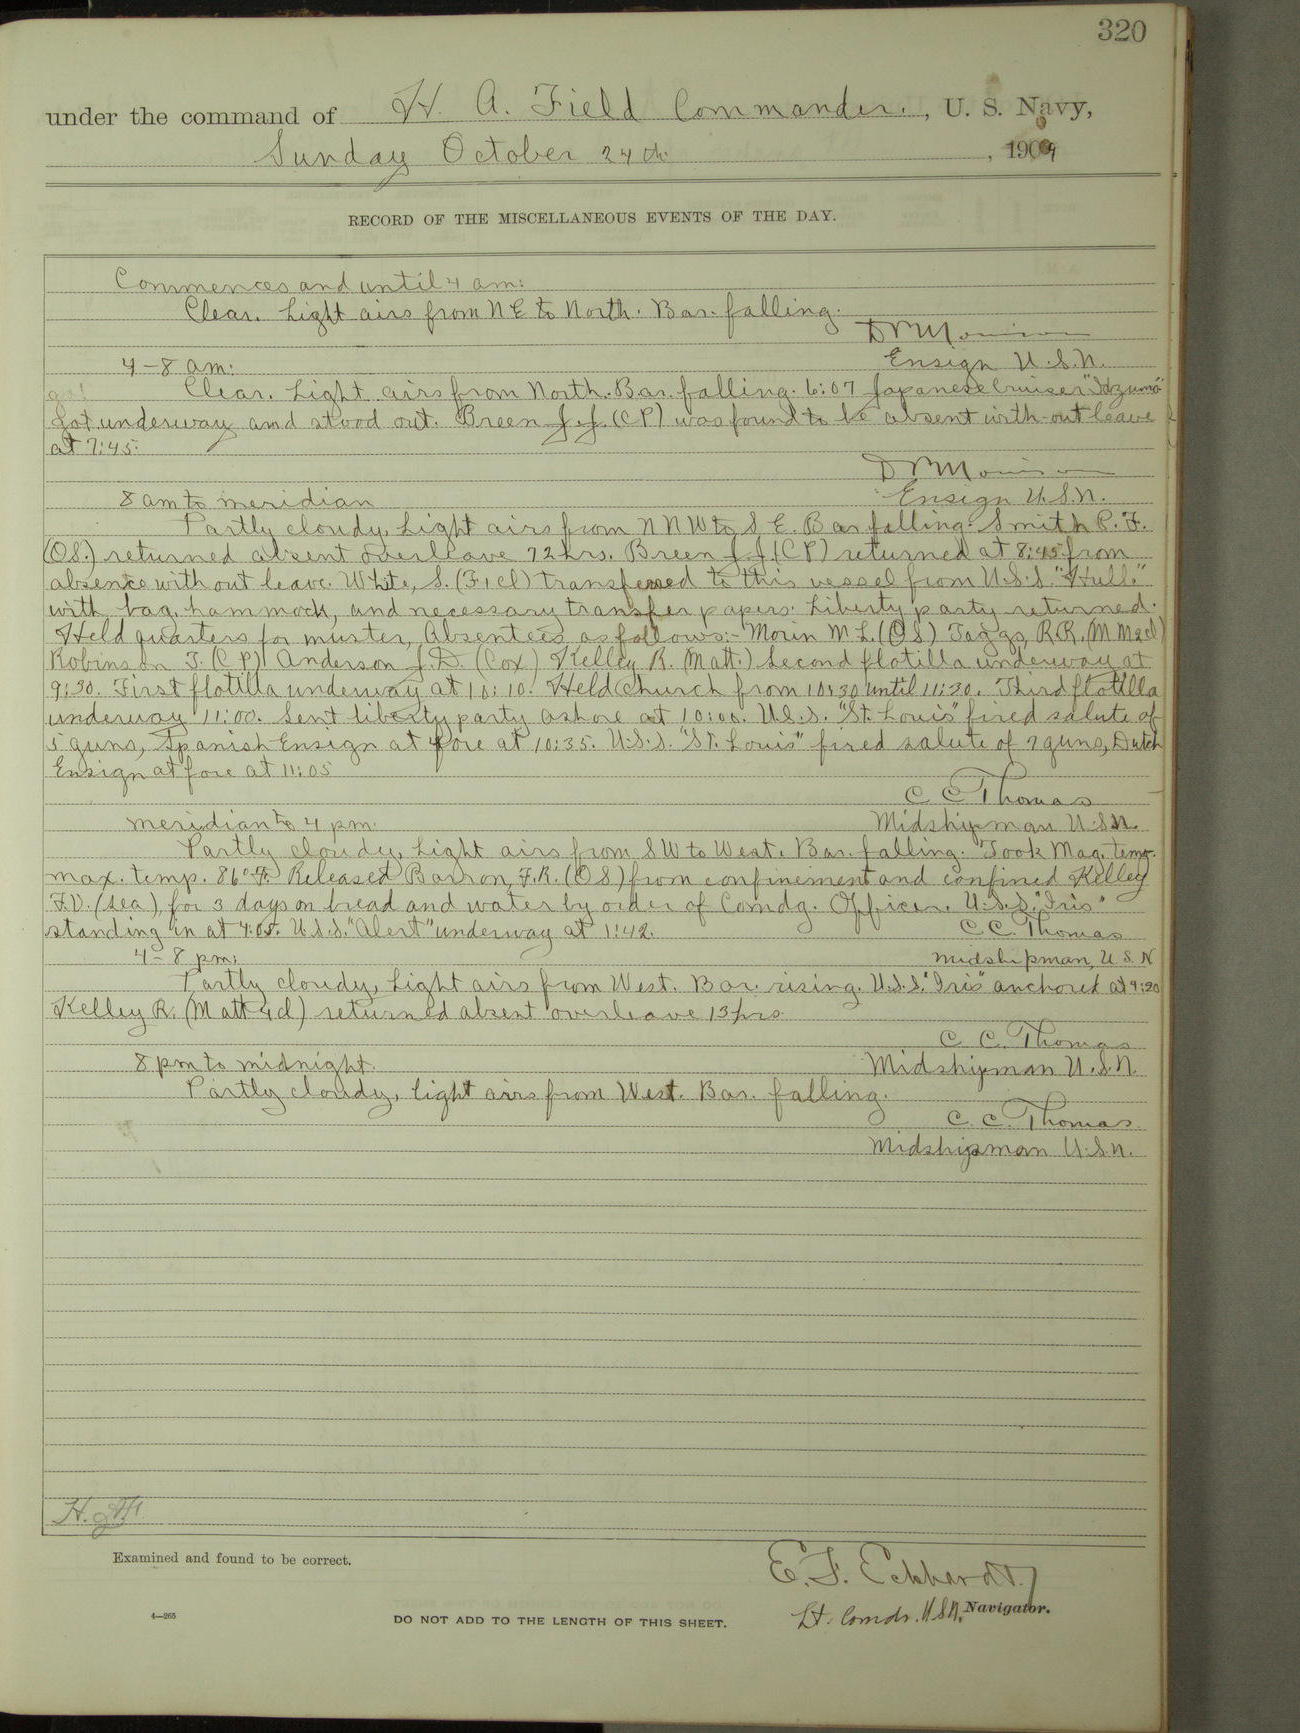 320
under the command of H. A. Field Commander., U. S. Navy,
Sunday October 24th, 1909
RECORD OF THE MISCELLANEOUS EVENTS OF THE DAY.
Commences and until 4 am:
Clear. Light airs from NE to North. Bar. falling.
Ensign U.S.N.
4-8 am:
Clear. Light airs from North. Bar. falling. 6:07 Japanese Cruiser "Idzumo"
got underway and stood out. Breen J.J. (CP) was found to be absent with-out leave
at 7:45.
Ensign U.S.N.
8 am to meridian
Partly cloudy, Light airs from NNW to S E. Bar falling. Smith P. F.
(OS.) returned absent overleave 72 hrs. Breen J.J. (CP) returned at 8:45 from
absence with out leave. White, S. (F1cl) transferred to this vessel from U.S.S. "Hull"
with bag, hammock, and necessary transfer papers. Liberty party returned.
Held quarters for muster, Absentees as follows:- Morin M.L. (OS) Taggs, R.R. (M.M2cl)
Robinson T. (C.P) Anderson J.D. (Cox.) Kelley R. (Matt.) Second flotilla underway at
9:30. First flotilla underway at 10:10. Held church from 10:30 until 11:30. Third flotilla
underway 11:00. Sent liberty party ashore at 10:00. U.S.S. "St. Louis" fired salute of
5 guns, Spanish Ensign at fore at 10:35. U.S.S. "St. Louis" fired salute of 7 guns, Dutch
Ensign at fore at 11:05
C C Thomas
Midshipman U.S.N.
meridian to 4 pm:
Partly cloudy, Light airs from SW to West. Bar. falling. Took Mag. temp.
max. temp. 86° F. Released Barron, F.R. (OS) from confinement and confined Kelley
F.V. (sea), for 3 days on bread and water by order of Comdg. Officer. U.S.S. "Iris"
standing in at 4:05. U.S.S. "Alert" underway at 1:42.
C.C. Thomas
midshipman, U.S.N
4-8 pm:
Partly cloudy, Light airs from West. Bar rising. U.S.S. "Iris" anchored at 4:20
Kelley R. (Matt 4cl) returned absent overleave 13 hrs
C. C. Thomas
Midshipman U.S.N.
8 pm to midnight.
Partly cloudy, light airs from West. Bar. falling.
C. C. Thomas
Midshipman U.S.N.
Examined and found to be correct.
E. F. Eckhardt
Lt. Comdr. U.S.N., Navigator.
4—265
DO NOT ADD TO THE LENGTH OF THIS SHEET.